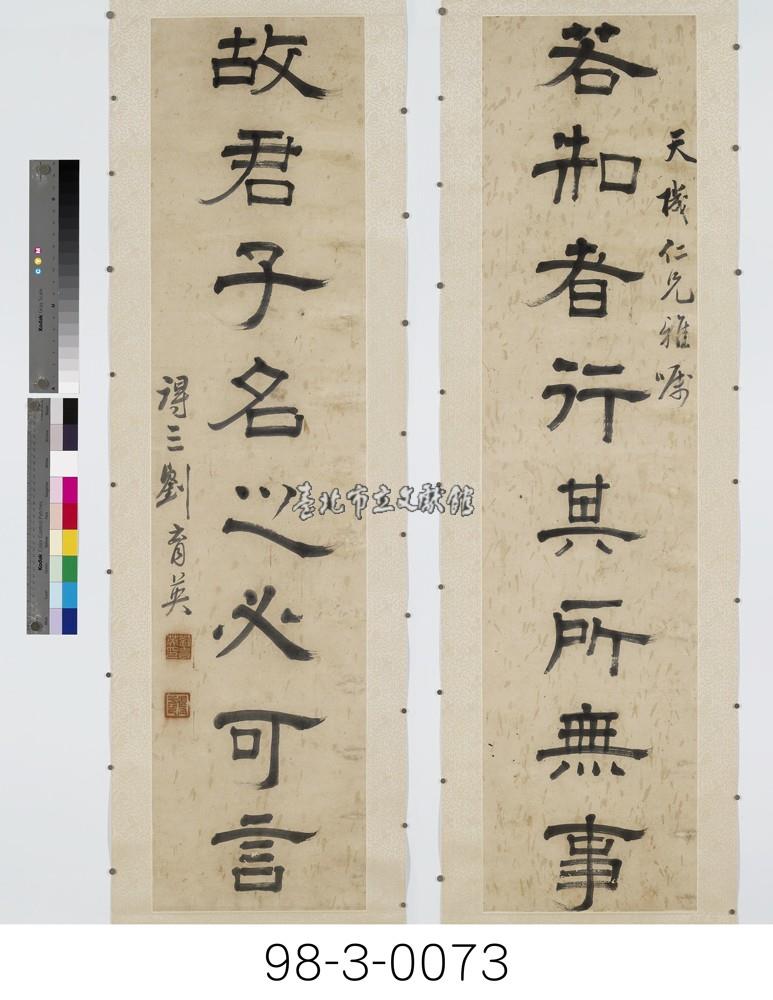 天機仁兄雅嘱
若知者行其所無事
故君子名之必可言
得三劉育英
臺北市立文獻館
98-3-0073